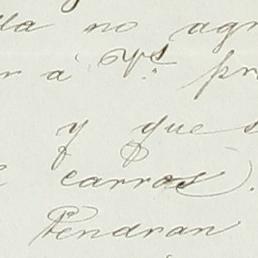 lla no agr
r á Vs. pr
y que s
carros).
Pendran